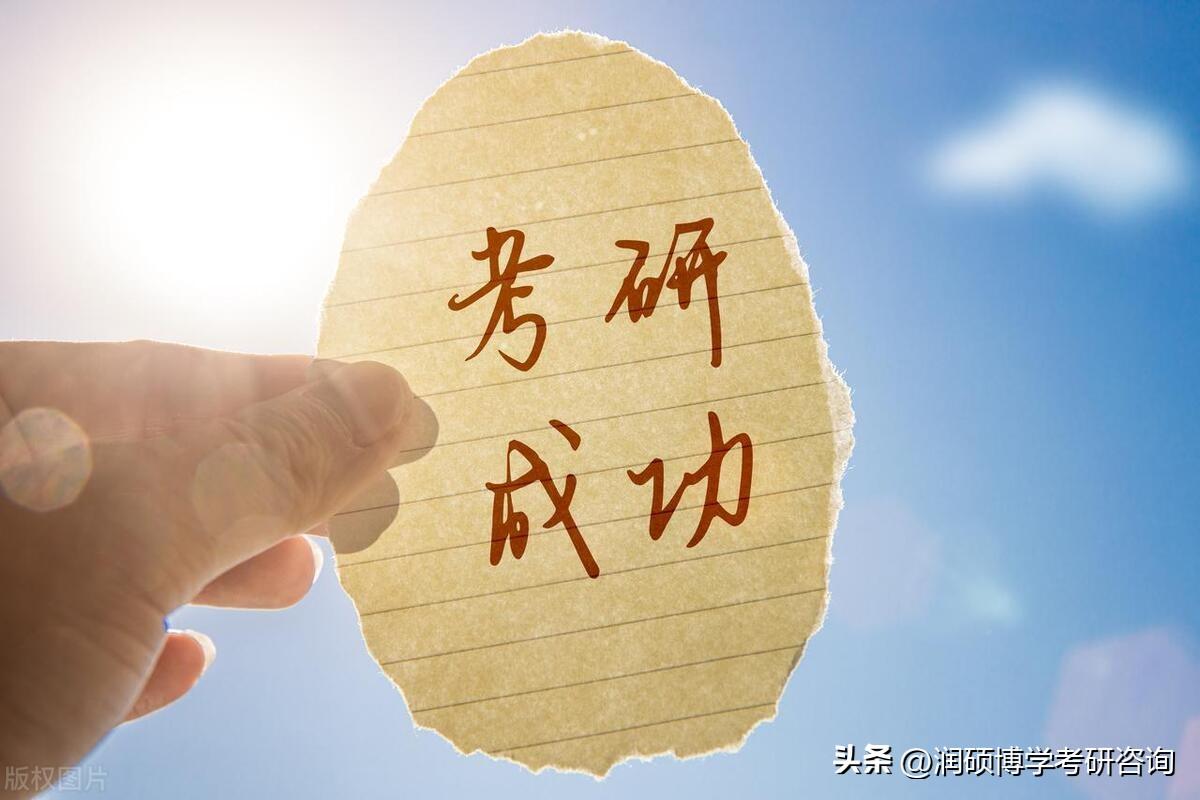 考研
成功
头条 @润硕博学考研咨询
版权图片